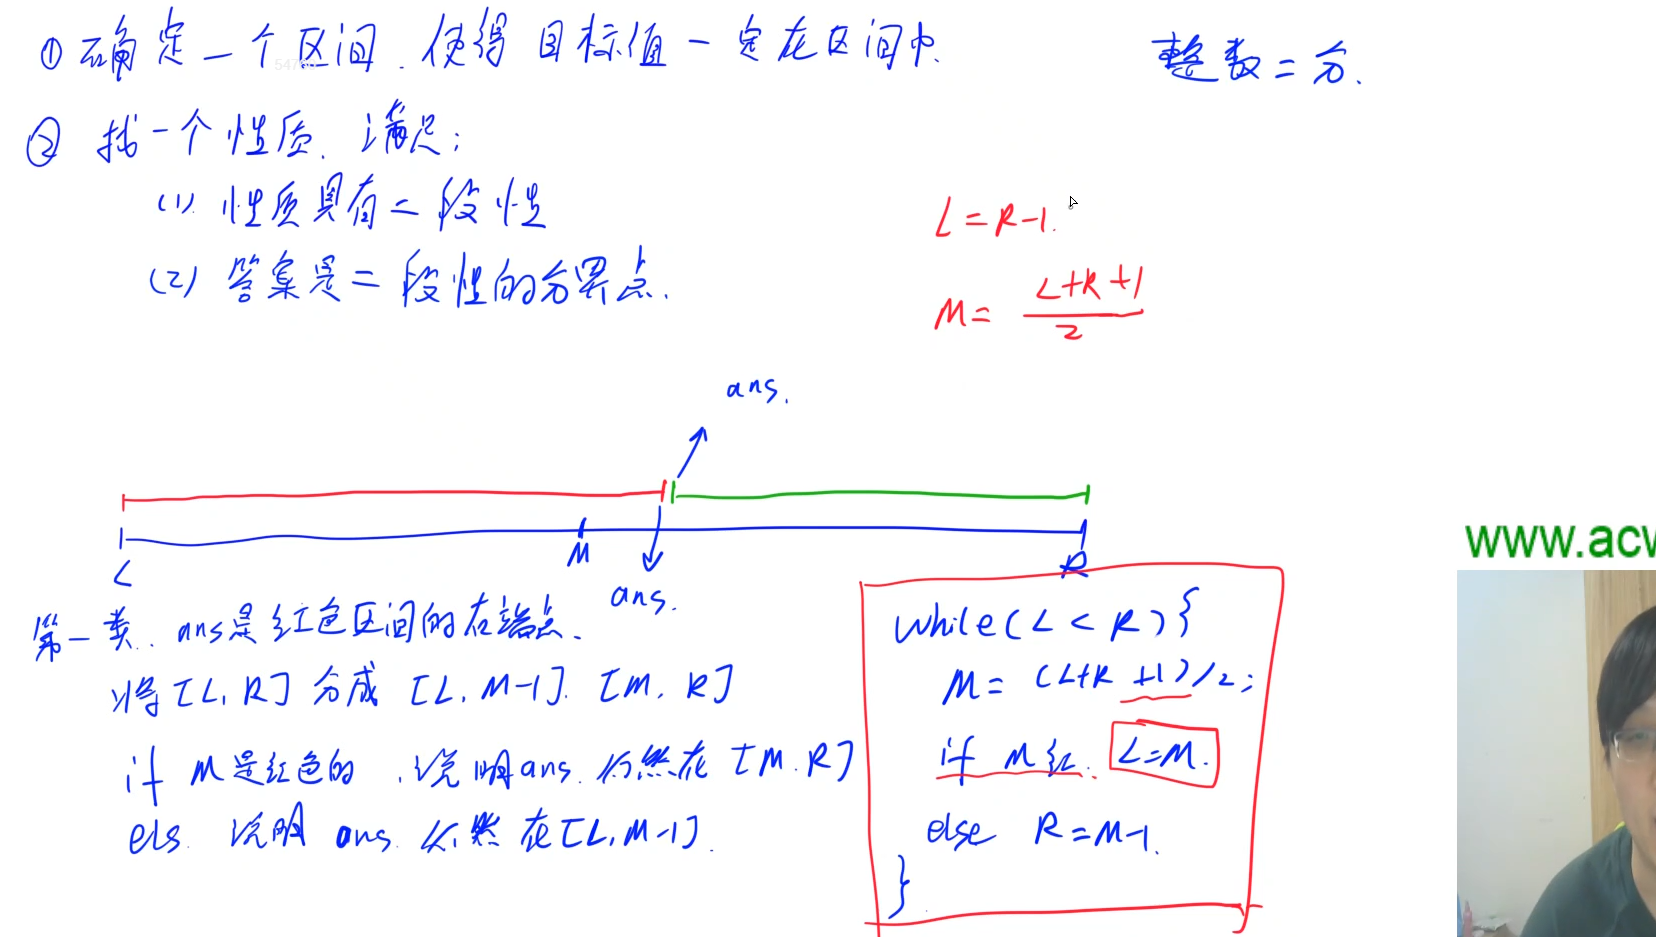 ① 确定一个区间，使得目标值一定在区间中.
整数二分.
② 找一个性质，满足：
(1) 性质具有二段性
(2) 答案是二段性的分界点.
L = R-1.
M = (L+R+1)/2
ans.
L M R
ans.
第一类. ans是红色区间的右端点.
将[L, R] 分成 [L, M-1]. [M, R]
if M是红色的，说明ans. 仍然在 [M. R]
els. 说明 ans. 仍然在[L, M-1].
while(L < R){
M = (L+R +1)/2;
if M红. L=M.
else R=M-1.
}
www.acw